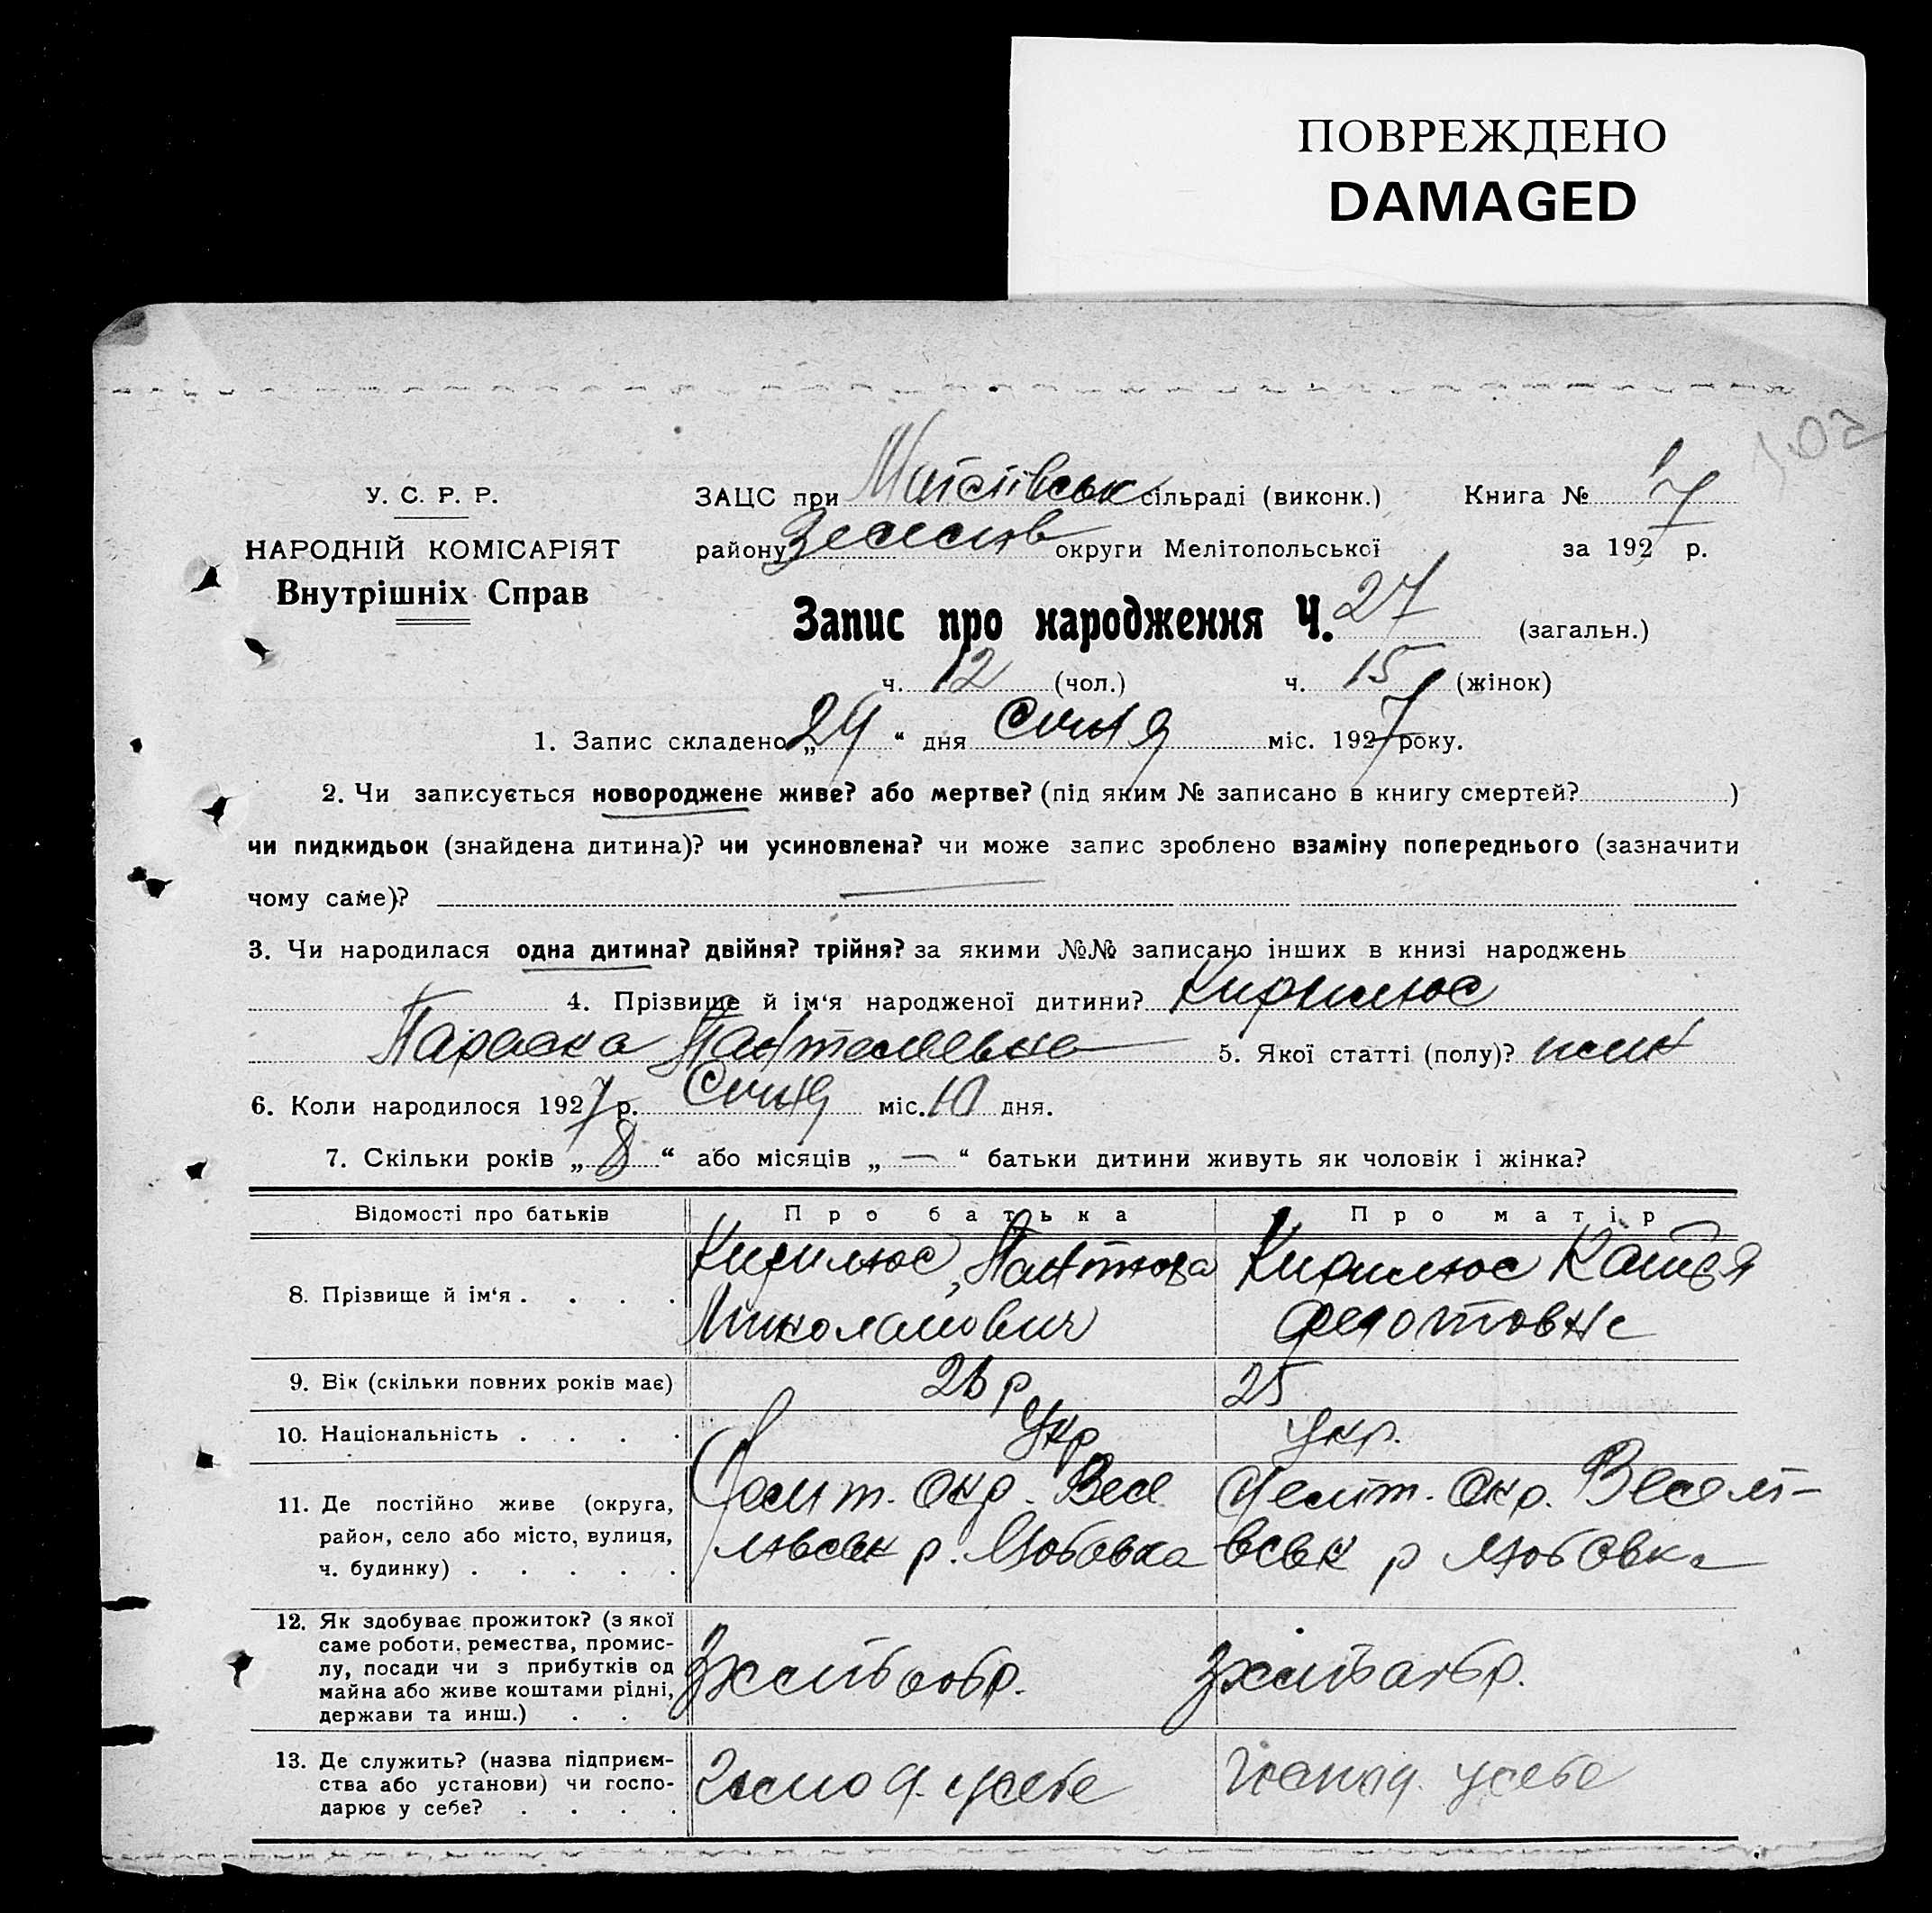 ПОВРЕЖДЕНО
DAMAGED
У. С. Р. Р.
НАРОДНІЙ КОМІСАРІЯТ
Внутрішніх Справ
ЗАЦС при сільраді (виконк.)
Книга № 7
району округи Мелітопольської
за 1927 р.
Запис про народження Ч. 27 (загальн.)
ч. 12 (чол.) ч. 15 (жінок)
1. Запис складено „29“ дня Січня міс. 1927 року.
2. Чи записується новороджене живе? або мертве? (під яким № записано в книгу смертей? )
чи пидкидьок (знайдена дитина)? чи усиновлена? чи може запис зроблено взаміну попереднього (зазначити
чому саме)? —
3. Чи народилася одна дитина? двійня? трійня? за якими №№ записано інших в книзі народжень
4. Прізвище й ім‘я народженої дитини? Кирилюс
Параска Пантелеевна 5. Якої статті (полу)?
6. Коли народилося 1927 р. Січня міс. 10 дня.
7. Скільки років „8“ або місяців „—“ батьки дитини живуть як чоловік і жінка?
Відомості про батьків Про батька Про матір
8. Прізвище й ім‘я . . . .
Кирилюс
Миколайович
Кирилюс
Федотовне
9. Вік (скільки повних років має) 26 р 25
10. Національність . . . . Укр укр.
11. Де постійно живе (округа,
район, село або місто, вулиця,
ч. будинку) . . . . .
Меліт. окр. Весе
лівськ р. Любовка
Меліт. Окр. Веселі-
вськ р Любовка
12. Як здобуває прожиток? (з якої
саме роботи, ремества, промис-
лу, посади чи з прибутків од
майна або живе коштами рідні,
держави та инш.) . . .
Зхлібообр.
Зхлібообр.
13. Де служить? (назва підприєм-
ства або установи) чи госпо-
дарює у себе? . . . .
усебе
усебе